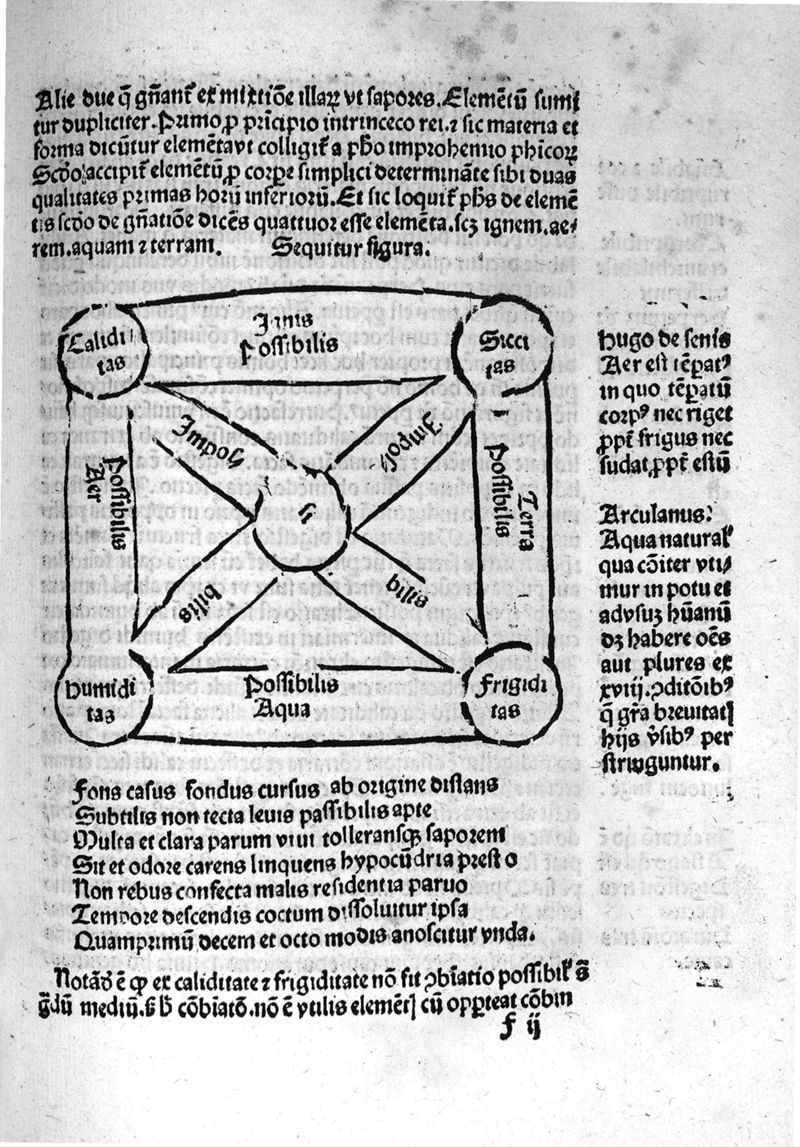 Alie due q̄ gñant̃ ex mixtiōe illaꝝ vt sapores. Elemētū sumi
tur dupliciter. Primo ꝓ prīcipio intrinceco rei. ⁊ sic materia et
forma dicūtur elemēta vt colligit̃ a pħo in prohemio phicoꝝ
Scd̄o accipit̃ elemētū ꝓ corpe simplici determināte sibi duas
qualitates primas horū inferiorū. Et sic loquit̃ pħs de elemē
tis scd̄o de gñatiōe dicēs quattuor esse elemēta. scꝫ ignem. ae⸗
rem. aquam ⁊ terram. Sequitur figura.
Calidi
tas
Ignis
Possibilis
Sicci
tas
Impossi
Impossi
Possibilis
Aer
Possibilis
Terra
bilis
bilis
Humidi
tas
Possibilis
Aqua
Frigidi
tas
Hugo de senis
Aer est tēpatꝰ
in quo tēpatū
corpꝰ nec riget
ꝓpt̃ frigus nec
sudat ꝓpt̃ estū
Arculanus:
Aqua natural̃
qua cōiter vti⸗
mur in potu et
ad vsuꝫ hūanū
dꝫ habere oēs
aut plures ex
xviij. ꝯditōibꝰ
q̄ gr̃a breuitatꝭ
hijs v̉sibꝰ per
stringuntur.
Fons casus fondus cursus ab origine distans
Subtilis non tecta leuis passibilis apte
Multa et clara parum vini tolleransqꝫ saporem
Sit et odore carens linquens hypocūdria presto
Non rebus confecta malis residentia paruo
Tempore descendis coctum dissoluitur ipsa
Quamprimū decem et octo modis anoscitur vnda.
Notād̄ ē ꝙ ex caliditate ⁊ frigiditate nō fit ꝯbiatio possibil̃ s̄
gd̄ū mediū. s̄ ƀ cōbiatō. nō ē vtilis elemēt̉ꝭ cū opꝑteat cōbin
f ij